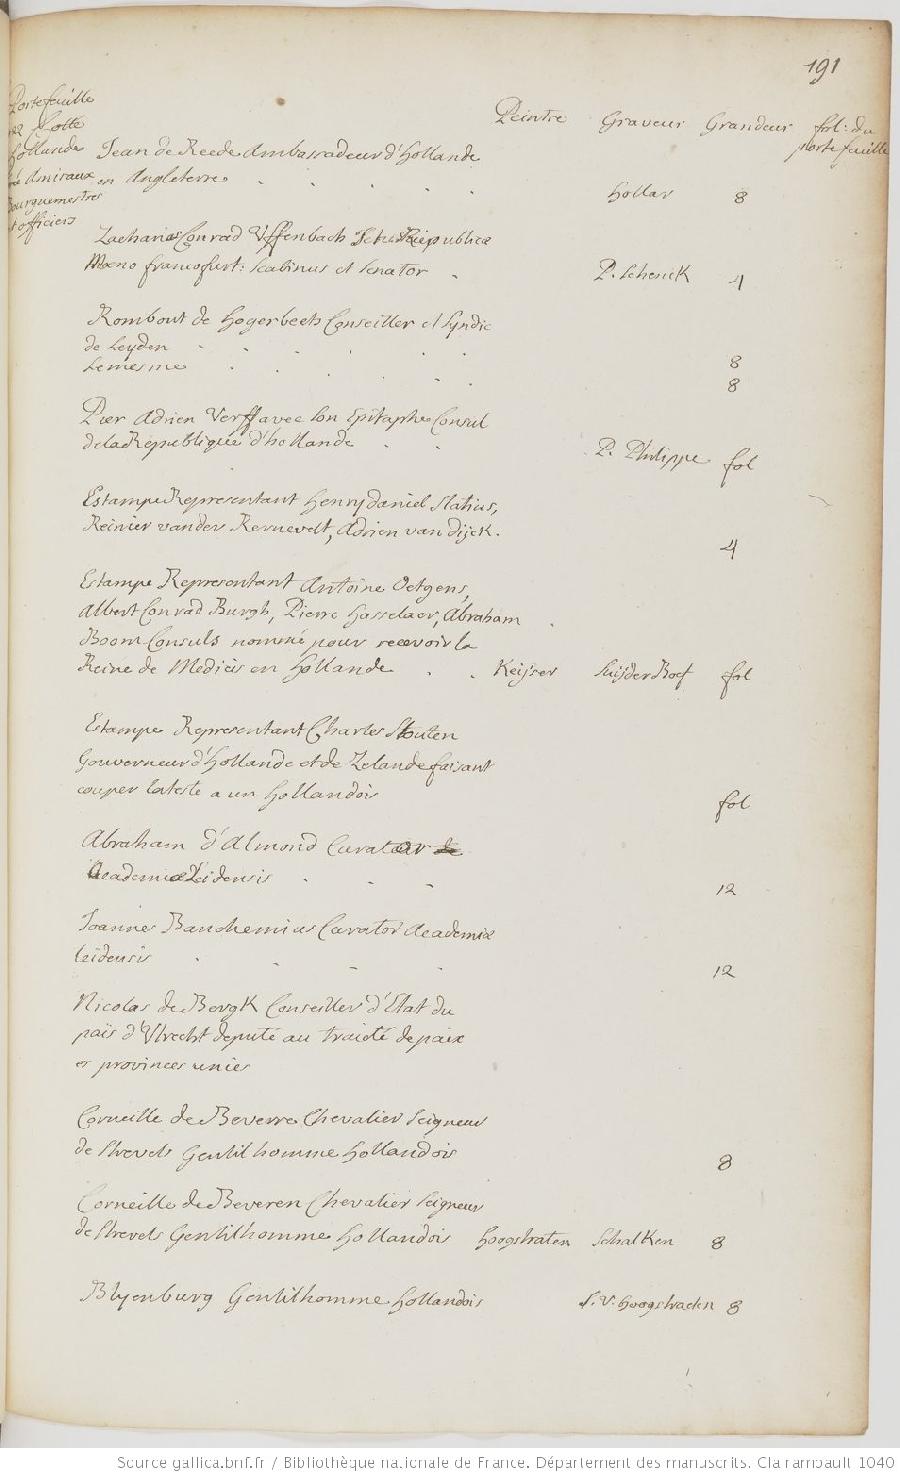 191
Portefeuille
Cotte
hollande
Amiraux
Bourguemestres
et officiers
Peintre Graveur Grandeur fol: du
portefeuille
Jean de Reede Ambassadeur d'Hollande
en Angleterre . . . . . hollar 8
Zacharias Conrad Uffenbach Reipublicæ
Mœno francofurt: scabinus et senator . P. Schenck 4
Rombout de hogerbeets Conseiller et syndic
de Leyden . . . . . . 8
Le mesme . . . . . 8
Pier Adrien Verff avec son Epitaphe Consul
de la Republique d'hollande . . P. Philippe fol
Estampe Representant henry daniel slatius,
Reinier vander Kernevelt, Adrien van dijck.
4
Estampe Representant Antoine Oetgens,
Albert Conrad Burgh, Pierre hasselaer, Abraham
Boom Consuls nommé pour recevoir la
Reine de Medicis en hollande . . Keijser suijderhoef fol
Estampe Representant Charles Stouten
Gouverneur d'hollande et de Zelande faisant
couper la teste a un hollandois fol
Abraham d'Almond Curator de
Academiæ Leidensis . . . 12
Joannes Banchemius Curator Academiæ
leidensis . . . . 12
Nicolas de Bergk Conseiller d'Etat du
païs d'Utrecht deputé au traidté de paix
es provinces unies
Corneille de Beverre Chevalier seigneur
de strevels Gentilhomme hollandois 8
Corneille de Beveren Chevalier seigneur
de strevels Gentilhomme hollandois hoogstraten schalken 8
Blyenburg Gentilhomme hollandois S. V. hoogstraeten 8
Source gallica.bnf.fr / Bibliothèque nationale de France. Département des manuscrits. Clairambault 1040